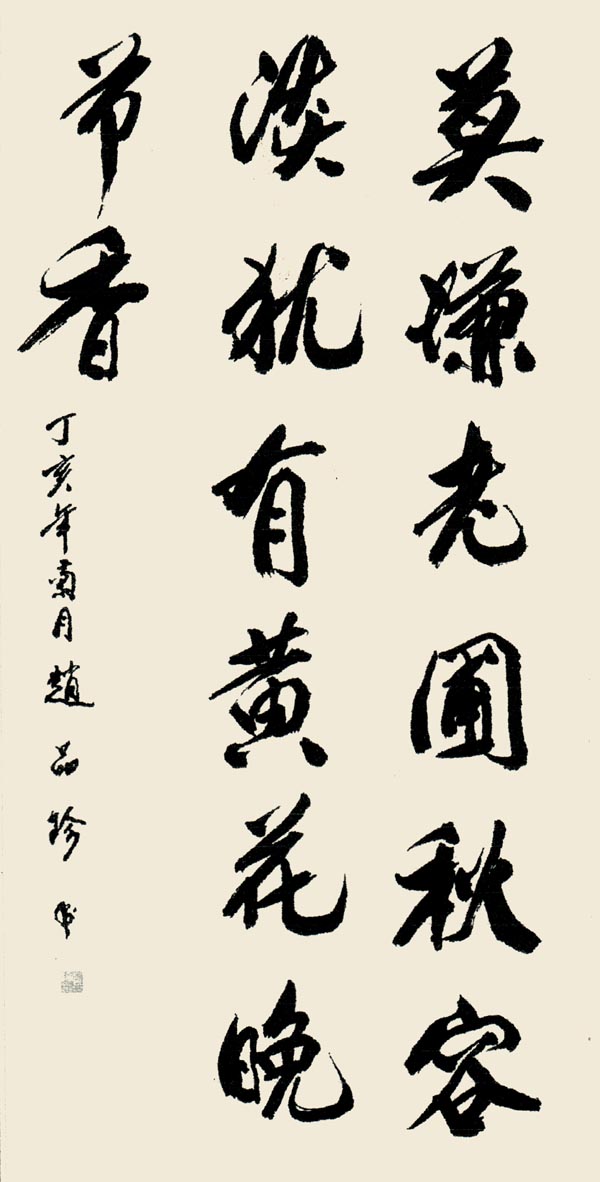 莫嫌老圃秋容
淡犹有黄花晚
节香
丁亥年菊月趙品珍书